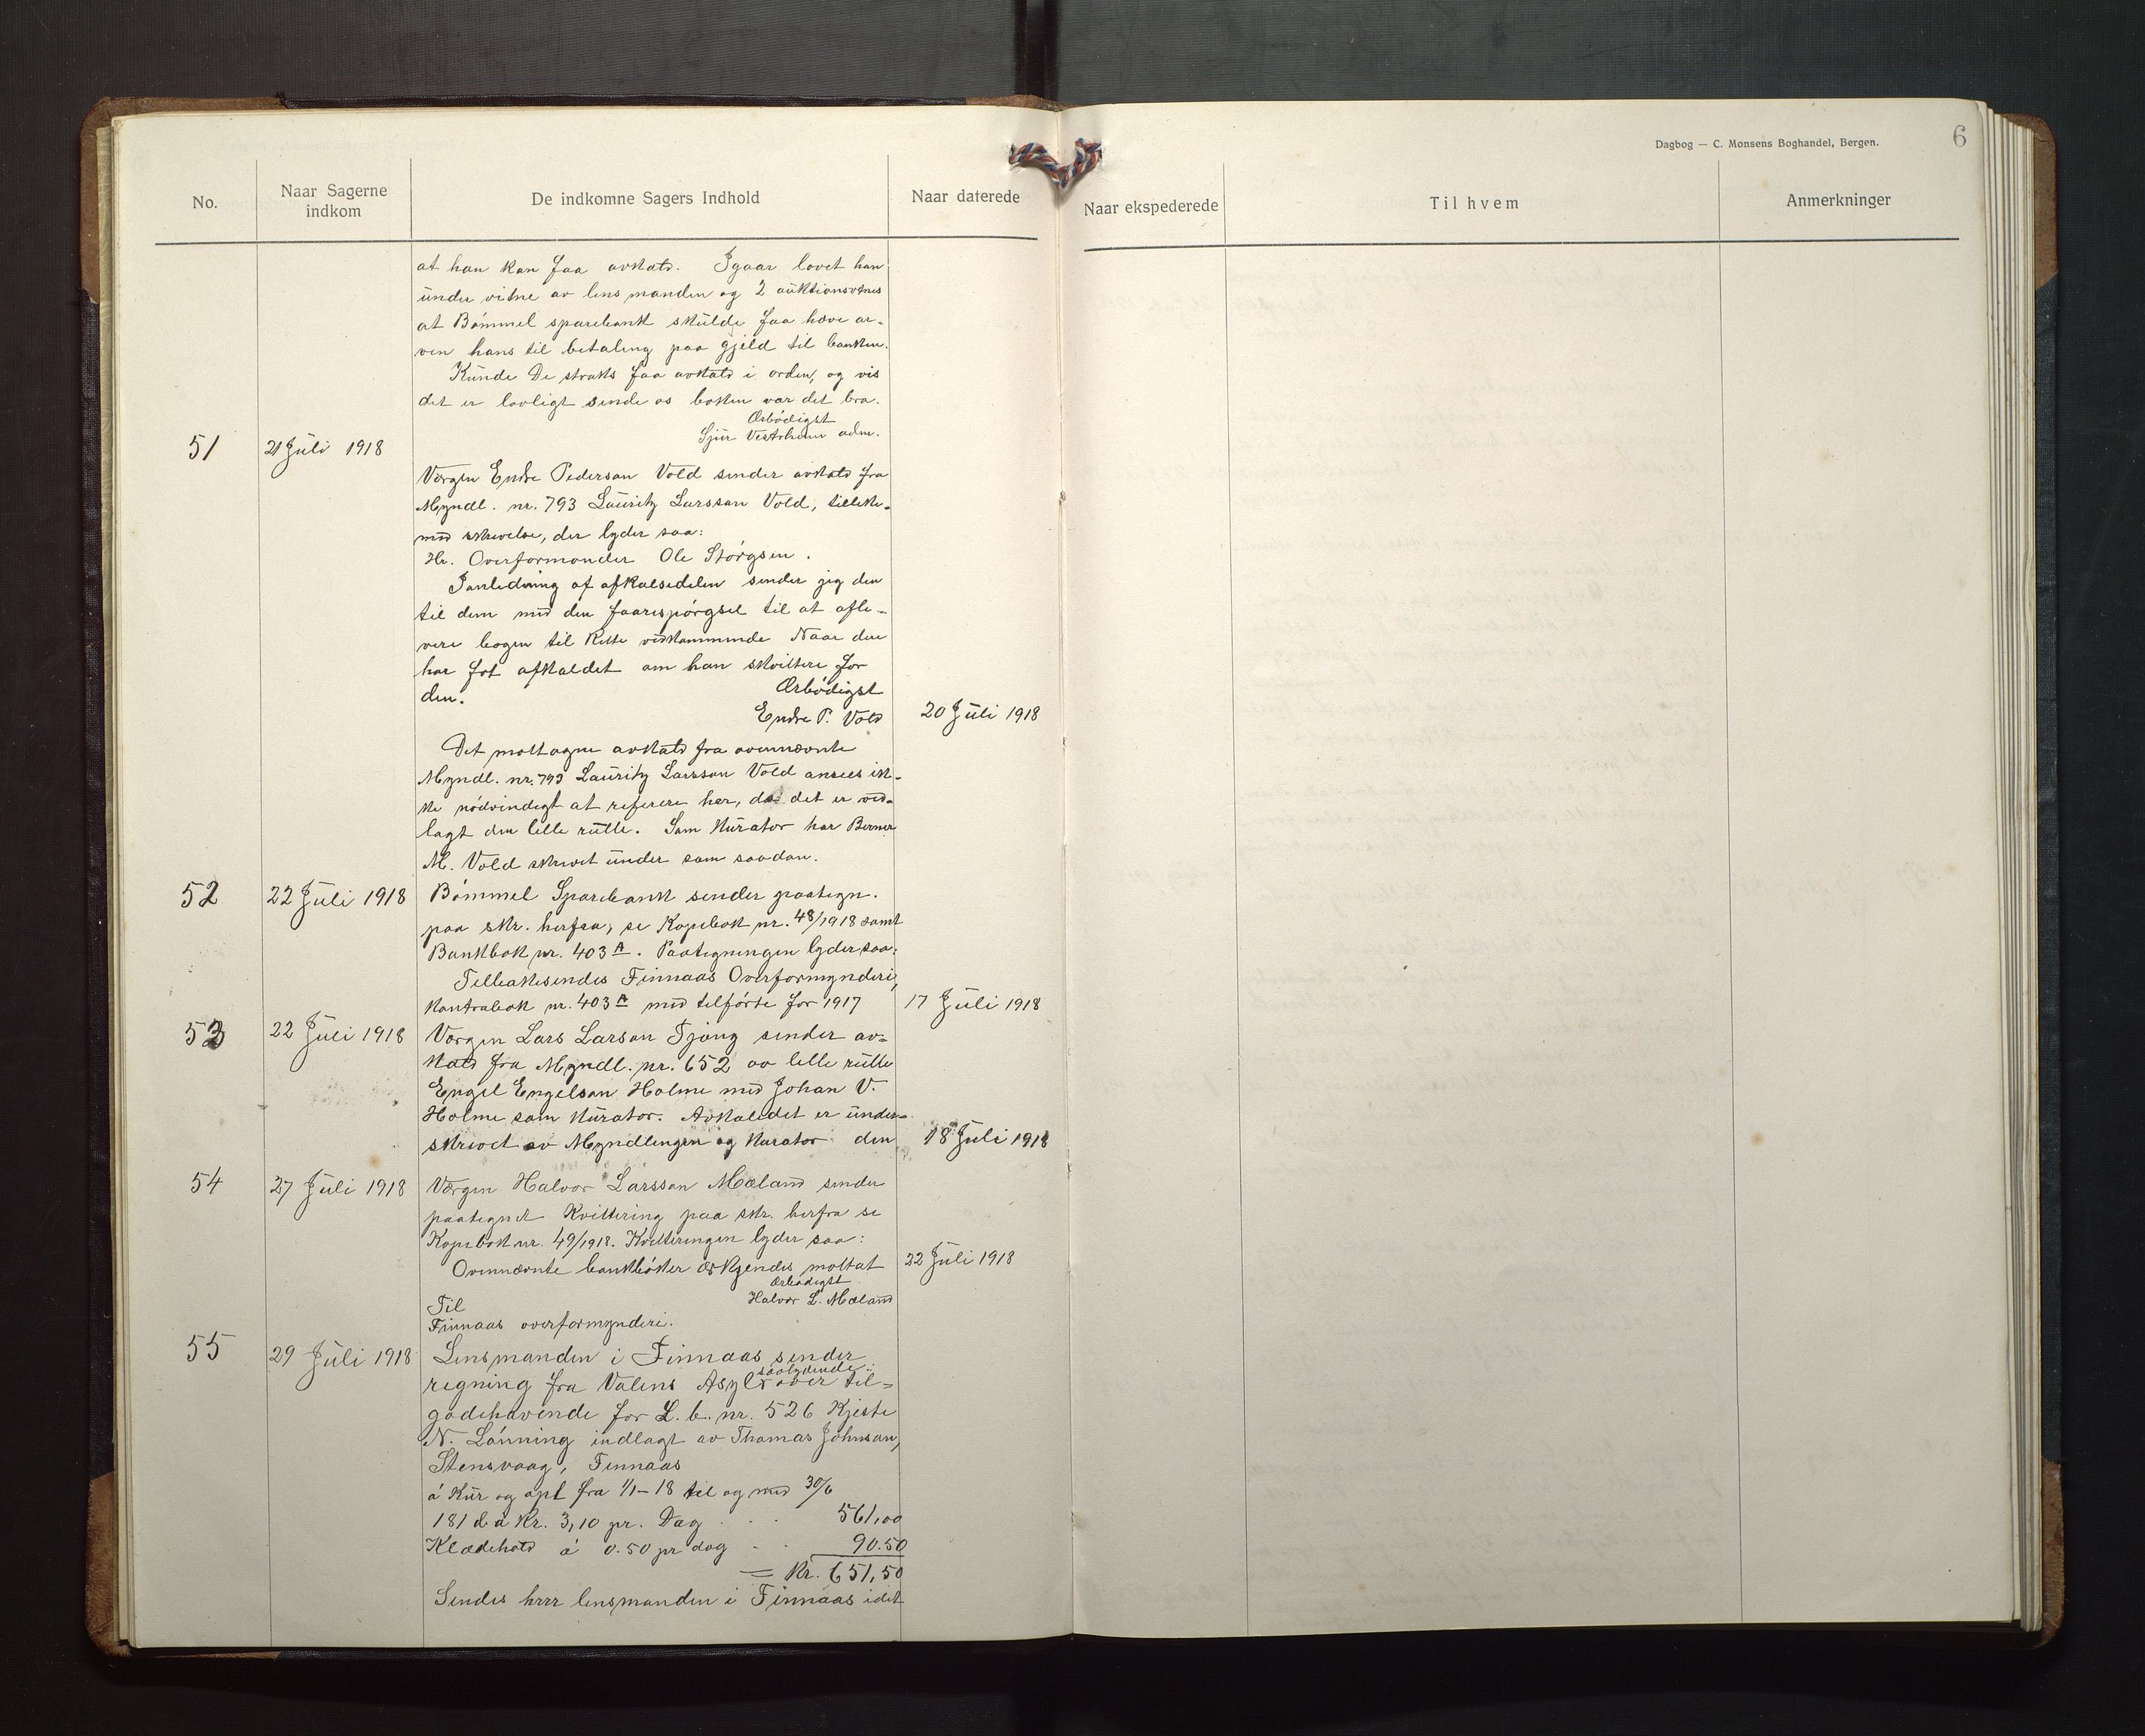 Dagbog — C. Monsens Boghandel, Bergen.
6
No.
Naar Sagerne indkom
De indkomne Sagers Indhold
Naar daterede
Naar ekspederede
Til hvem
Anmerkninger
at han kan faa avkald. Igaar lovet han
under vitne av lensmanden og 2 auktionsvitnes
at Bömmel sparebank skulde faa hæve ar-
ven hans til betaling paa gjeld til banken.
Kunde De straks faa avkald i orden, og vis
det er lovligt sende os boken var det bra.
Ærbödigst
Sjur Vestrheim adm.
51 21 Juli 1918
Værgen Endre Pederson Vold sender avkald fra
Myndl. nr. 793 Lauritz Larsson Vold, tilleke-
med skrivelse, der lyder saa:
Hr. Overformonder Ole Störgsen.
Ianledning af afkalsedelen sender jeg den
til dem med den faarespörgsel til at afle-
vere bogen til Rette vedkammende Naar den
har fot afkaldet om han skviltere for
den. Ærbödigst
Endre P. Vold 20 Juli 1918
Det mottagne avkald fra ovennævnte
Myndl. nr. 793 Lauritz Larsson Vold ansees ik-
ke nödvendigt at referere her, da det er ved-
lagt den lille rulle. Som Kurator har Berner
M. Vold skrevet under som saadan.
52 22 Juli 1918 Bömmel Sparebank sender paategn.
paa skr. herfra, se Kopibok nr. 48/1918 samt
Bankbok nr. 403 A. Paategningen lyder saa:
Tilbakesendes Finnaas Overformynderi,
Kontrabok nr. 403 A med tilförte for 1917 17 Juli 1918
53 22 Juli 1918 Værgen Lars Larson Tjong sender av-
kald fra Myndl. nr. 652 av lille rulle
Engel Engelson Holme med Johan V.
Holme som Kurator. Avkaledet er under-
skrevet av Myndlingen og Kurator den 18 Juli 1918
54 27 Juli 1918 Værgen Halvor Larsson Mæland sender
paategnet Kvittering paa skr. herfra se
Kopibok nr. 49/1918. Kvitteringen lyder saa:
Ovennævnte bankböker erkjendes mottat 22 Juli 1918
Ærbödigst
Til Halvor L. Mæland
Finnaas overformynderi.
55 29 Juli 1918 Lensmanden i Finnaas sender
saalydende
regning fra Valens Asyl over til-
godehavende for L. b. nr. 526 Kjeste
N. Lönning indlagt av Thomas Johnson,
Stensvaag, Finnaas
á Kur og opl fra 1/1-18 til og med 30/6
181 d á Kr. 3,10 pr. Dag . . 561,00
Klædehold á 0.50 pr dag . . 90.50
= Kr. 651,50
Sendes hrrr lensmanden i Finnaas idet